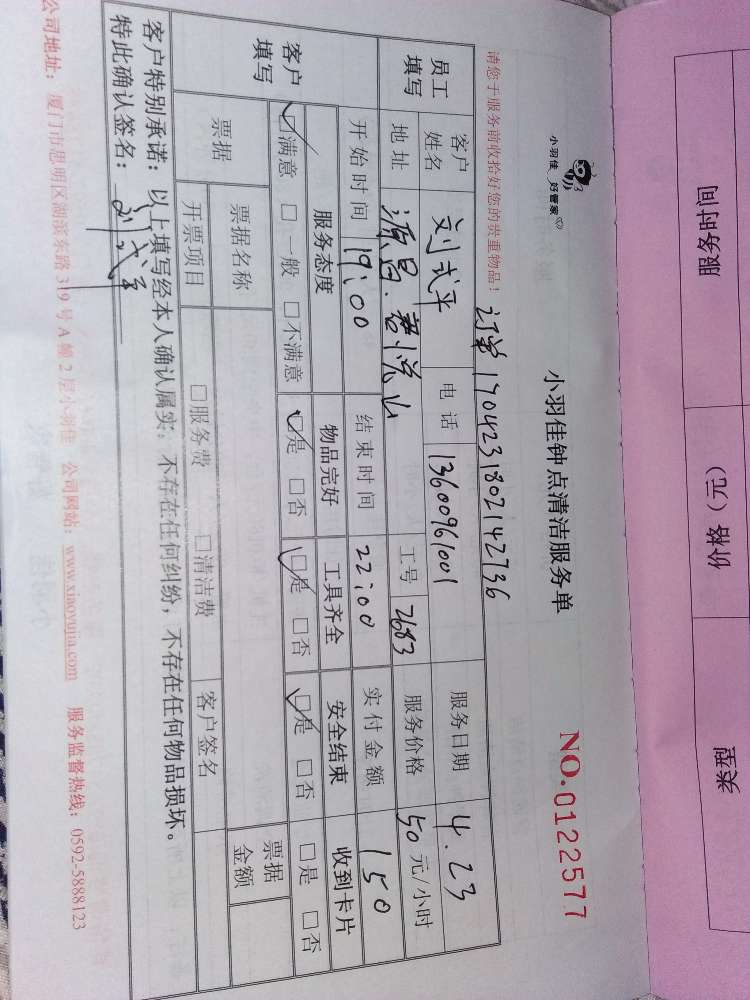 服务时间 价格(元) 类型
小羽佳 好管家
小羽佳钟点清洁服务单
NO.0122577
请您于服务前收拾好您的贵重物品!
订单 1704231802142736
员工填写 客户姓名 刘武平 电话 13600961001 服务日期 4.23
地址 源昌.君悦山 工号 2683 服务价格 50 元/小时
开始时间 19:00 结束时间 22:00 实付金额 150
客户填写 服务态度 物品完好 工具齐全 安全结束 收到卡片
☑满意 □一般 □不满意 ☑是 □否 ☑是 □否 ☑是 □否 □是 □否
票据 票据名称 票据金额
开票项目 □服务费 □清洁费 客户签名
客户特别承诺:以上填写经本人确认属实,不存在任何纠纷,不存在任何物品损坏。
特此确认签名:刘武平
公司地址:厦门市思明区湖滨东路 319 号 A 幢 2 层小羽佳 公司网站:www.xiaoyujia.com 服务监督热线:0592-5888123